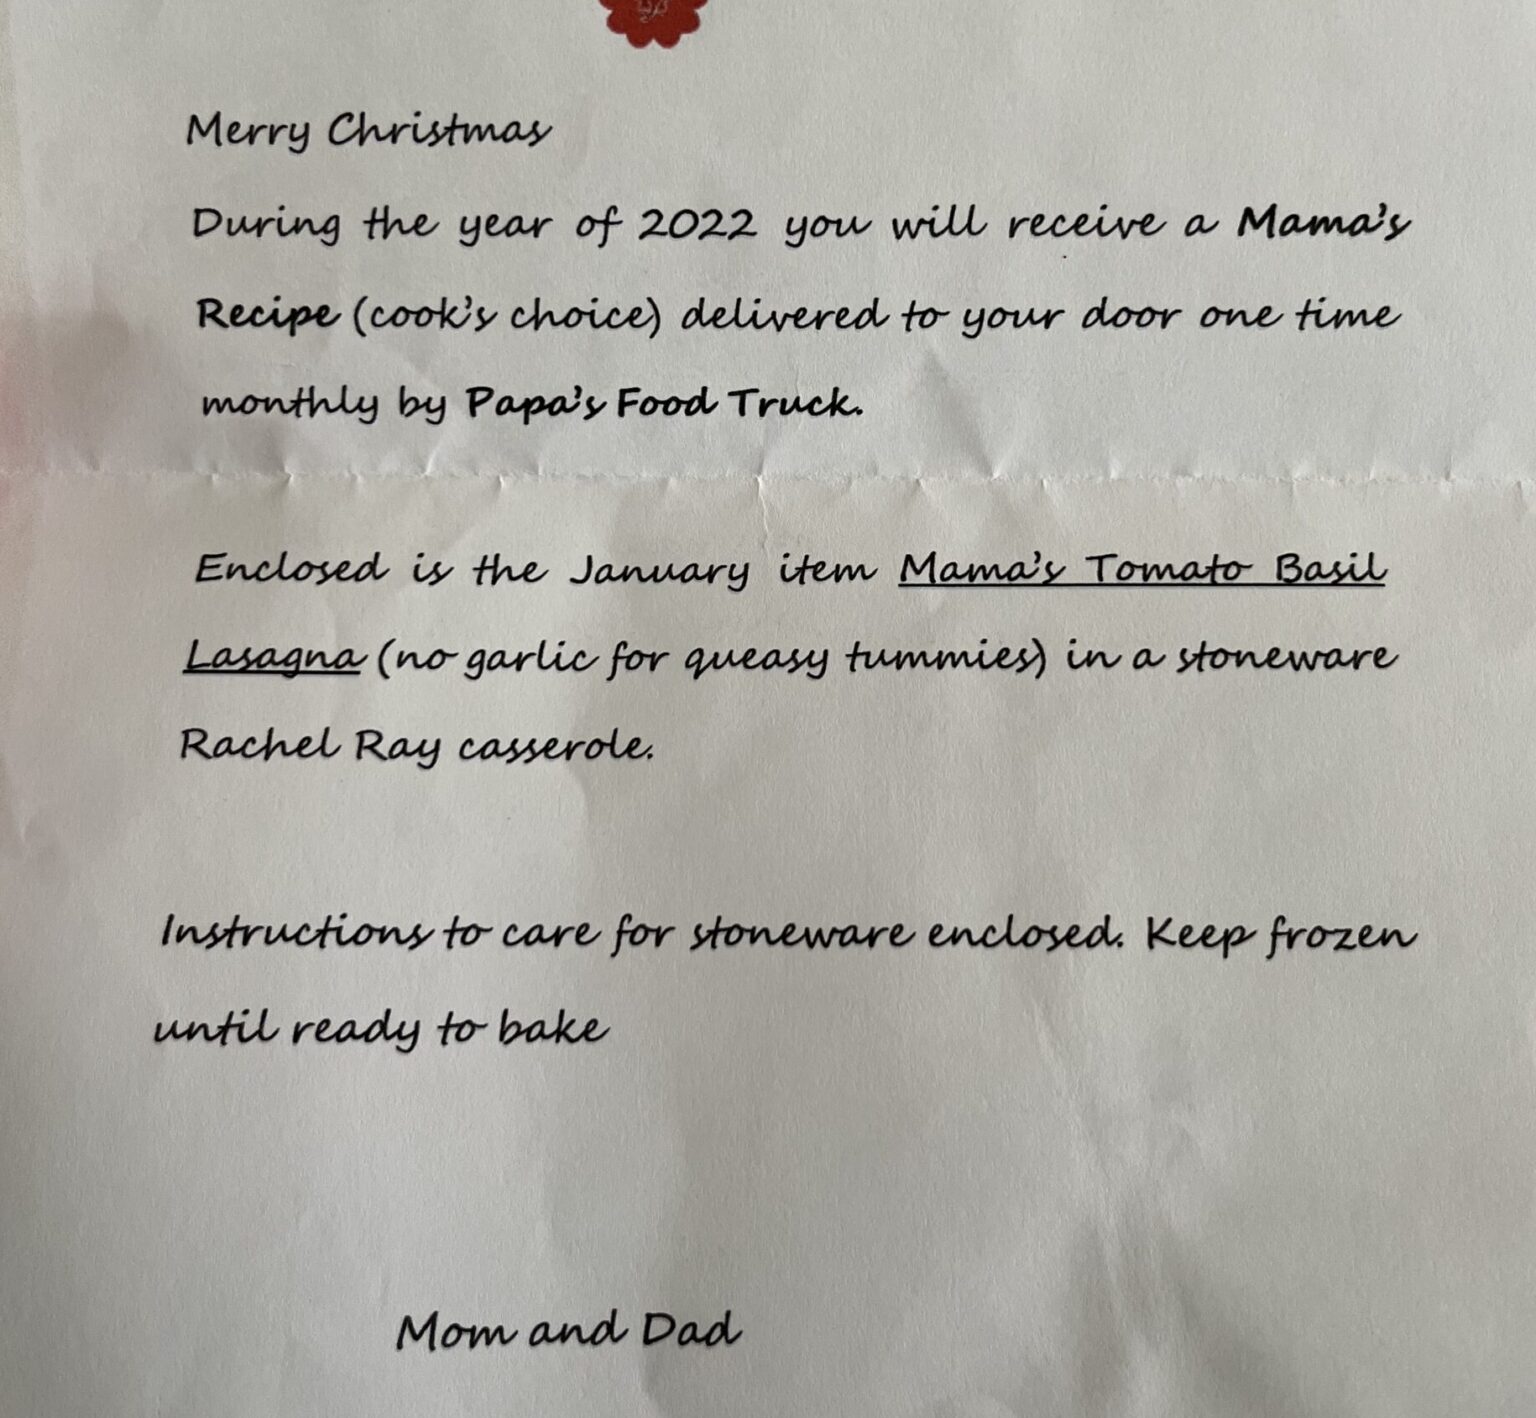 Merry Christmas
During the year of 2022 you will receive a Mama's
Recipe (cook's choice) delivered to your door one time
monthly by Papa's Food Truck.
Enclosed is the January item Mama's Tomato Basil
Lasagna (no garlic for queasy tummies) in a stoneware
Rachel Ray casserole.
Instructions to care for stoneware enclosed. Keep frozen
until ready to bake
Mom and Dad